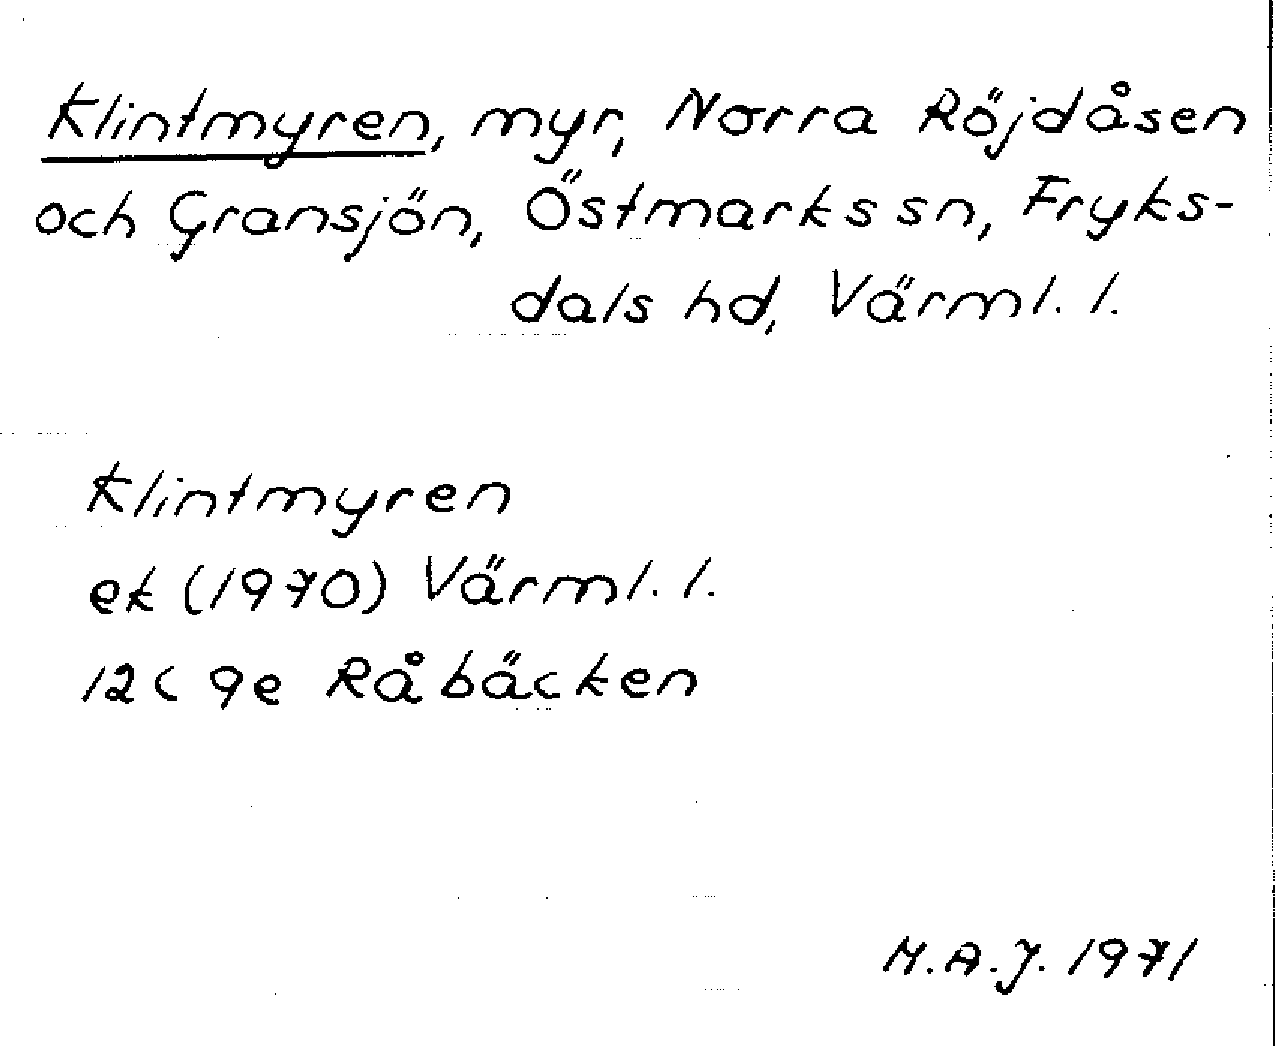 Klintmyren, myr, Norra Röjdåsen
och Gransjön, Östmarks sn, Fryks-
dals hd, Värml. l.
Klintmyren
ek (1970) Värml. l.
12 C 9e Råbäcken
M.A.J. 1971